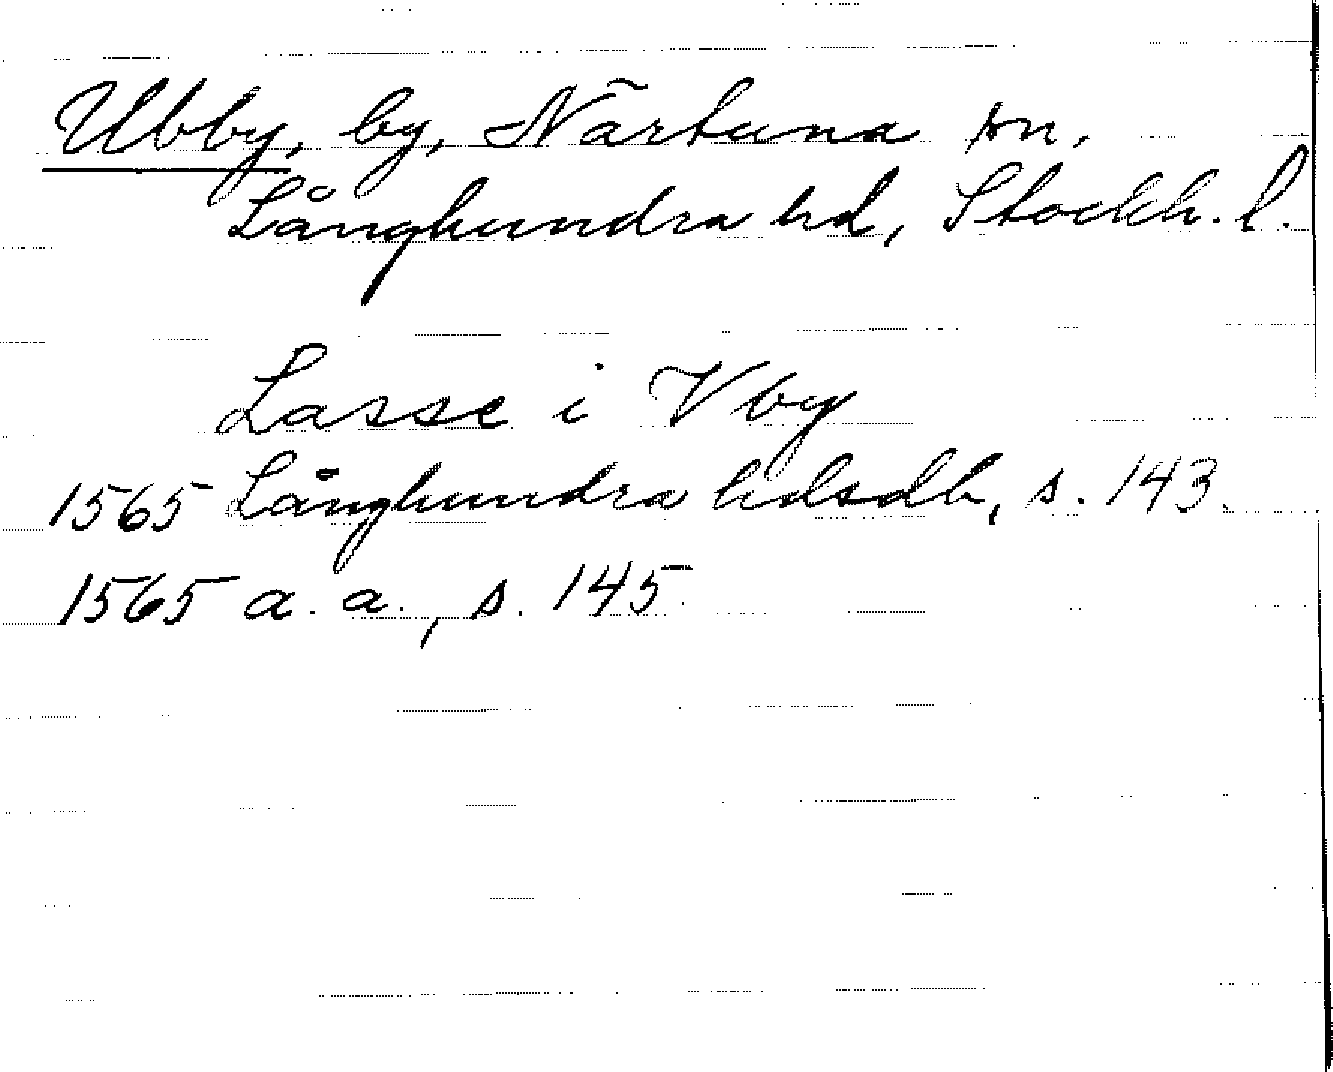 Ubby, by, Närtuna sn,
Långhundra hd, Stockh. l.
Lasse i Vby
1565 Långhundra hdsdb, s. 143.
1565 a. a., s. 145